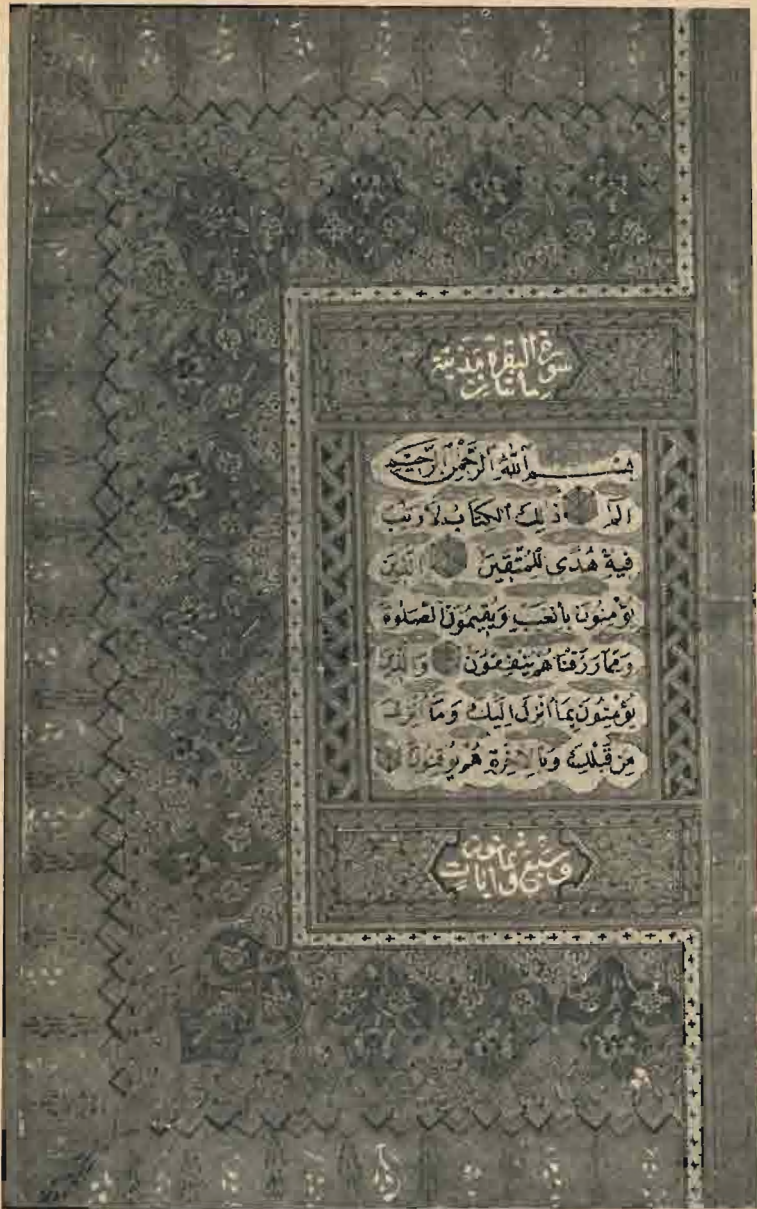 سورة البقرة مدنية
مائتان
بســــم ٱللَّهِ ٱلرَّحْمٰنِ ٱلرَّحِيمِ
الٓمٓ ذٰلِكَ الْكِتَابُ لَا رَيْبَ
فِيهِ هُدًى لِلْمُتَّقِينَ الَّذِينَ
يُؤْمِنُونَ بِالْغَيْبِ وَيُقِيمُونَ الصَّلٰوةَ
وَمِمَّا رَزَقْنَاهُمْ يُنْفِقُونَ وَالَّذِينَ
يُؤْمِنُونَ بِمَا أُنْزِلَ إِلَيْكَ وَمَا أُنْزِلَ
مِنْ قَبْلِكَ وَبِالْآخِرَةِ هُمْ يُوقِنُونَ
وآيات